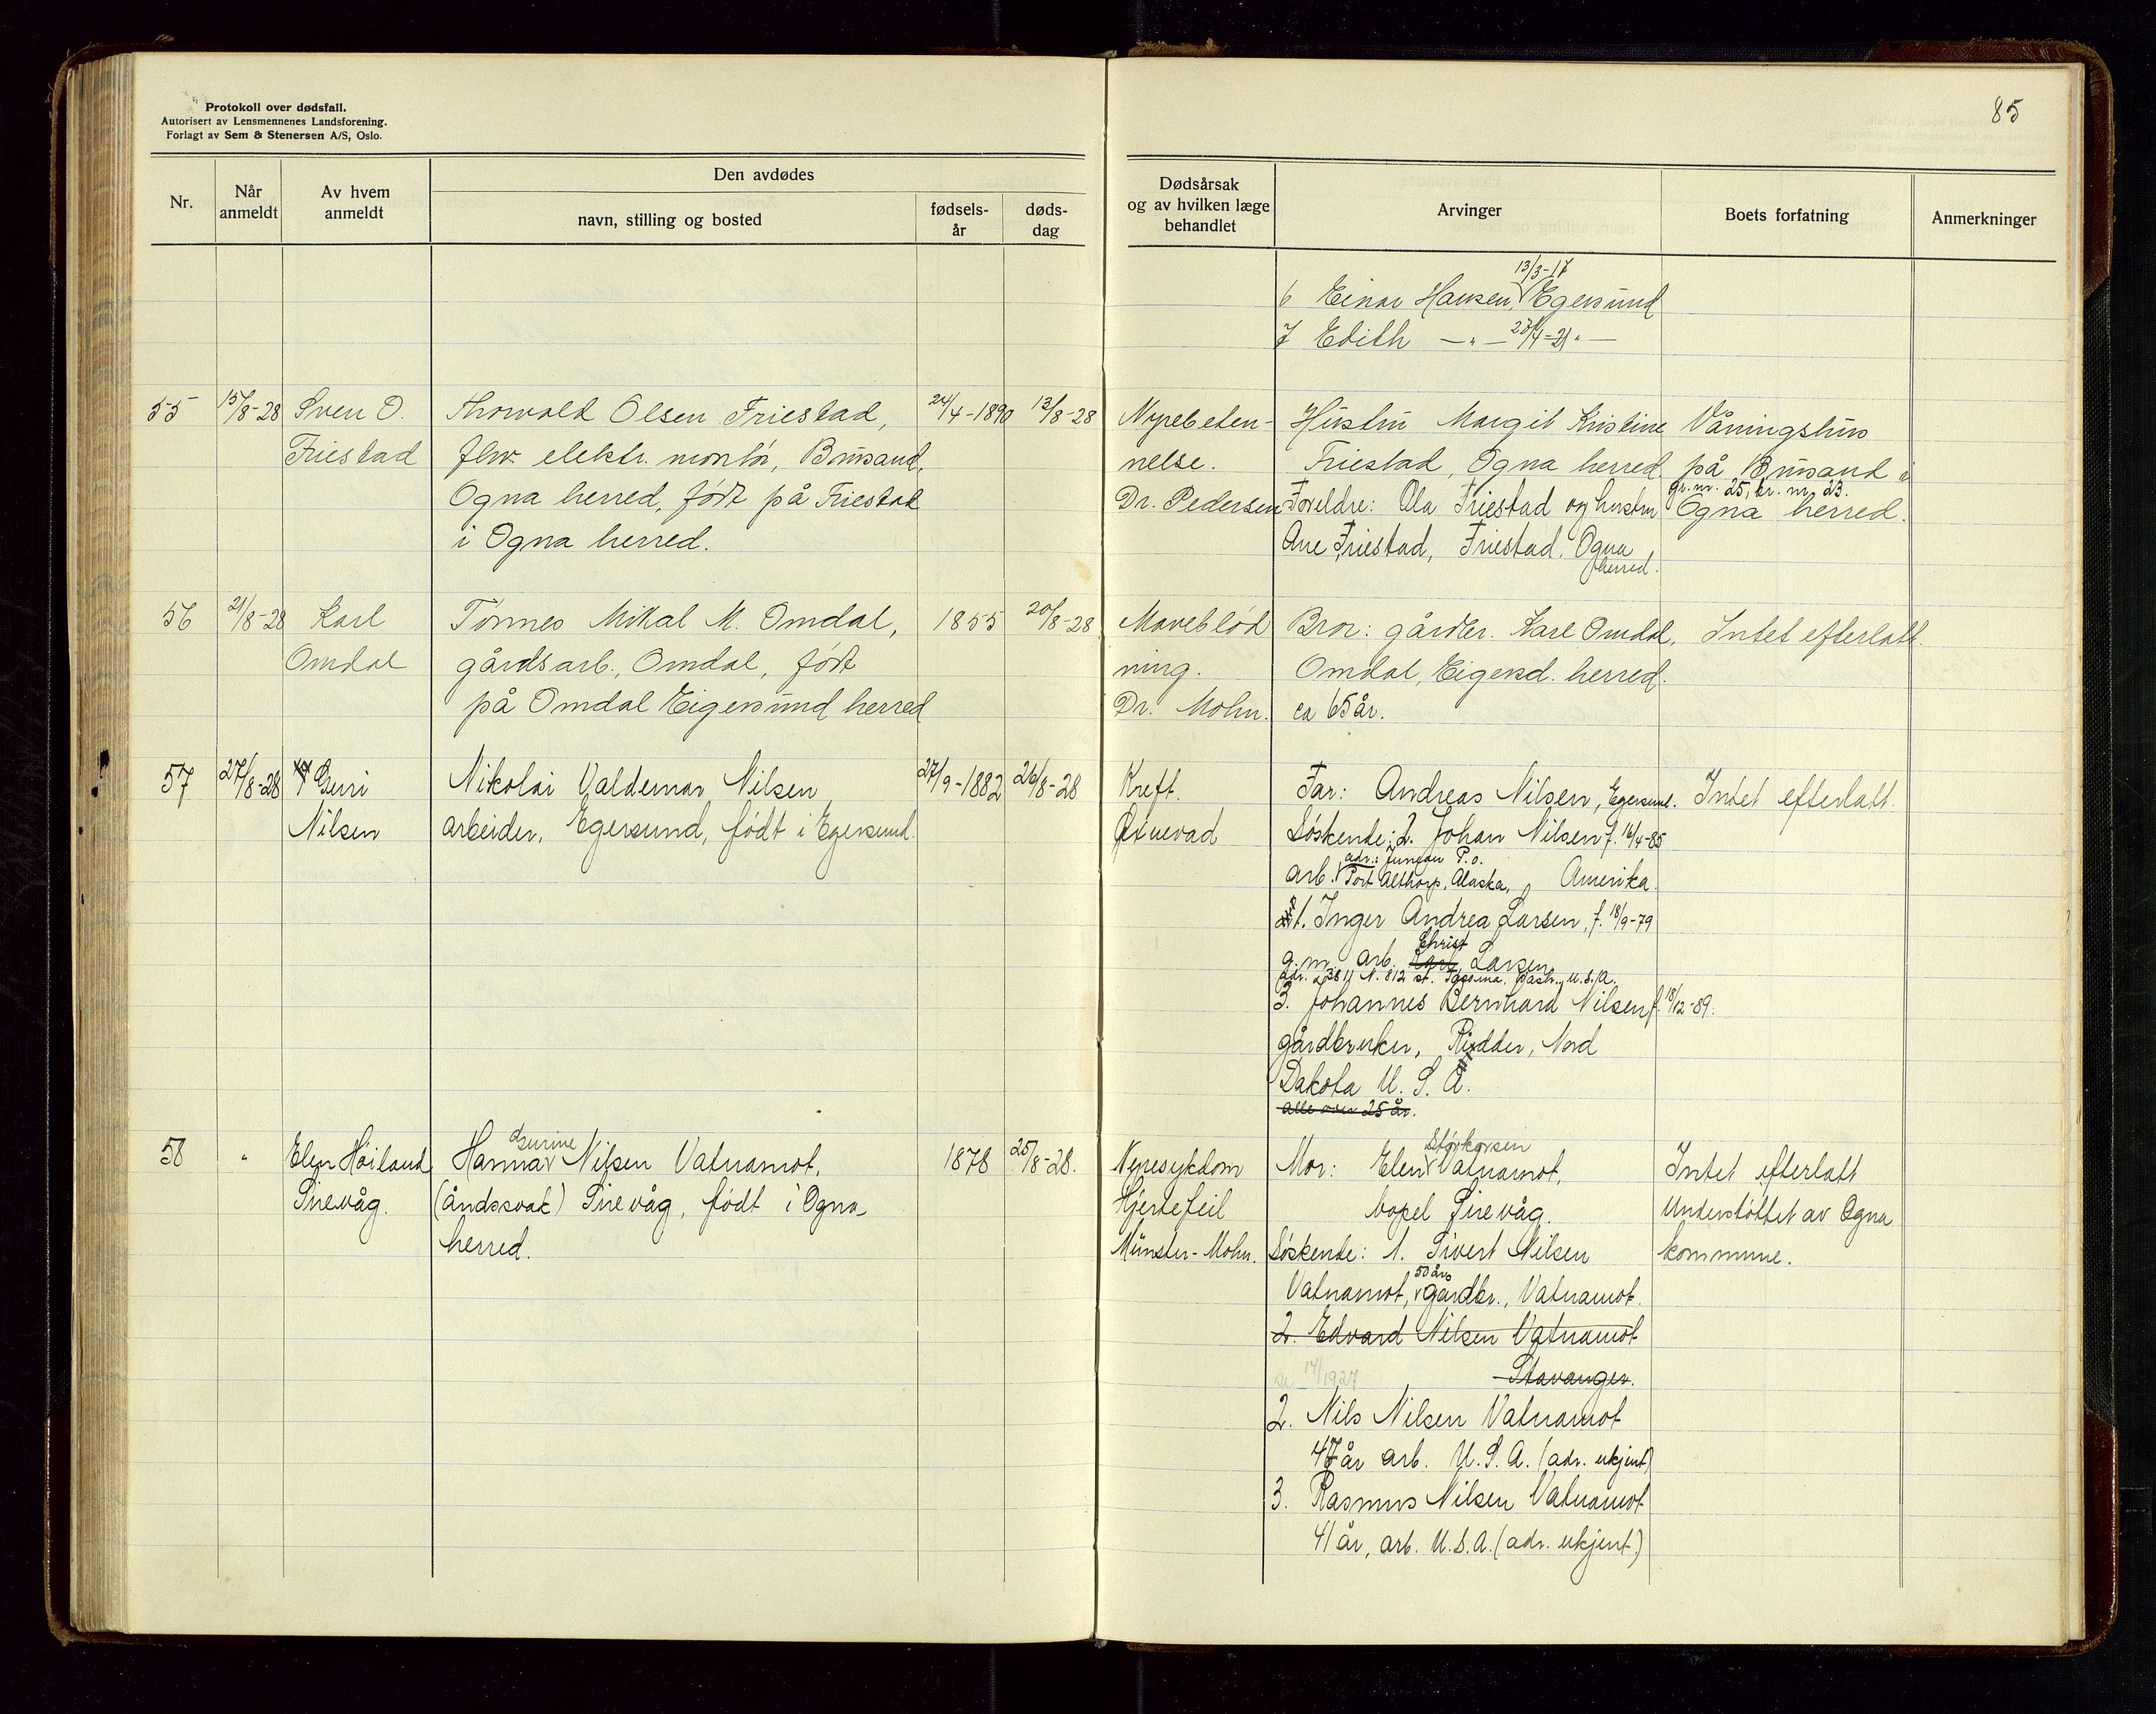 Protokoll over dødsfall.
Autorisert av Lensmennenes Landsforening.
Forlagt av Sem & Stenersen A/S, Oslo.
85
Nr.
Når anmeldt
Av hvem anmeldt
Den avdødes
navn, stilling og bosted
fødsels-år
døds-dag
Dødsårsak og av hvilken læge behandlet
Arvinger
Boets forfatning
Anmerkninger
13/3-17
6 Einar Hansen, Egersund
7 Edith —"— 23/4-21 "—
55 15/8-28 Sven O. Thorvald Olsen Friestad, 24/4-1890 13/8-28 Nyrebeten- Hustru Margit Kristine Våningshus
Friestad fhv. elektr. montør, Brusand, nelse. Friestad, Ogna herred på Brusand i
gr. nr. 25, br. nr. 23.
Ogna herred, født på Friestad Dr. Pedersen Foreldre: Ola Friestad og hustru Ogna herred.
i Ogna herred. Ane Friestad, Friestad, Ogna
herred.
56 21/8-28 Karl Tönnes Mikal M. Omdal, 1855 20/8-28 Maveblød Bror: gårdbr. Karl Omdal, Intet efterlatt.
Omdal gårdsarb., Omdal, født ning. Omdal, Eigersd. herred.
på Omdal Eigersund herred Dr. Mohn. ca 65 år.
57 27/8-28 Guri Nikolai Valdemar Nilsen 27/9-1882 26/8-28 Kreft. Far: Andreas Nilsen, Egersund. Intet efterlatt.
Nilsen arbeider, Egersund, født i Egersund. Søskende: 2. Johan Nilsen f. 16/4-85
adr.: Juneau P.o.
arb. Port Althorp, Alaska, Amerika.
1. Inger Andrea Larsen, f. 18/9-79
Christ
g.m. arb. Larsen
adr. 3811 N. 812 st. Tacoma, Wash., U.S.A.
3. Johannes Bernhard Nilsen f. 18/12-89.
gårdbruker, Rudder, Nord
Dakota U. S. A.
alle over 25 år.
58 " Elen Høiland Hanna Gurine Nilsen Vatnamot, 1878 25/8-28. Nyresykdom Mor: Elen Størkersen Vatnamot, Intet efterlatt
Sirevåg. (åndssvak) Sirevåg, født i Ogna Hjertefeil bopel Sirevåg. Understøttet av Ogna
herred. Münster-Mohn. Søskende: 1. Sivert Nilsen kommune.
50 år
Vatnamot, gårdbr., Vatnamot.
2. Edvard Nilsen Vatnamot
Stavanger.
2. Nils Nilsen Vatnamot
47 år arb. U. S. A. (adr. ukjent)
3. Rasmus Nilsen Vatnamot
41 år, arb. U.S.A. (adr. ukjent.)